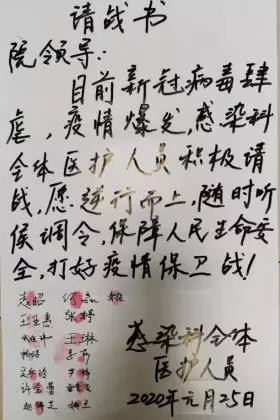 请战书
院领导:
目前新冠病毒肆
虐,疫情爆发,感染科
全体医护人员积极请
战,愿逆行而上,随时听
侯调令,保障人民生命安
全,打好疫情保卫战!
感染科全体
医护人员
2020年元月25日